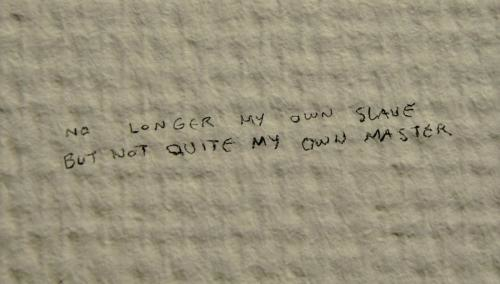 NO LONGER MY OWN SLAVE
BUT NOT QUITE MY OWN MASTER